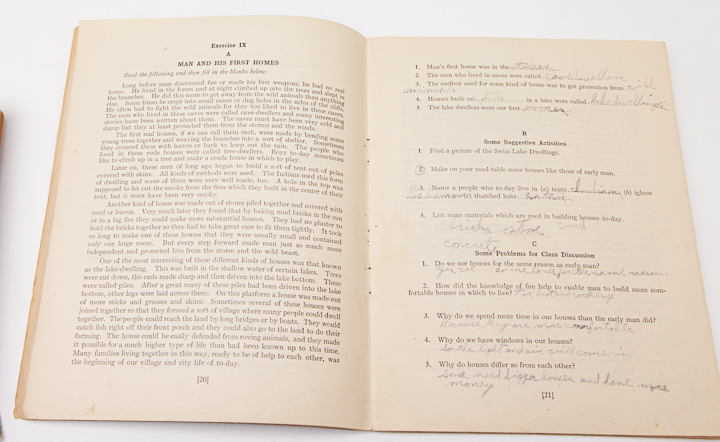 Exercise IX
A
MAN AND HIS FIRST HOMES
Read the following and then fill in the blanks below:
Long before man discovered fire or made his first weapons, he had no real
home. He lived in the forest and at night climbed up into the trees and slept in
the branches. He did this more to get away from the wild animals than anything
else. Some times he crept into small caves or dug holes in the sides of the cliffs.
He often had to fight the wild animals for they too liked to live in these caves.
The men who lived in these caves were called cave-dwellers and many interesting
stories have been written about them. The caves must have been very cold and
damp but they at least protected them from the storms and the winds.
The first real houses, if we can call them such, were made by bending some
young trees together and weaving the branches into a sort of shelter. Sometimes
they covered these with leaves or bark to keep out the rain. The people who
lived in these rude houses were called tree-dwellers. Boys to-day sometimes
like to climb up in a tree and make a crude house in which to play.
Later on, these men of long ago began to build a sort of tent out of poles
covered with skins. All kinds of methods were used. The Indians used this form
of dwelling and some of them were very well made, too. A hole in the top was
supposed to let out the smoke from the fires which they built in the center of their
tent, but it must have been very smoky.
Another kind of house was made out of stones piled together and covered with
mud or leaves. Very much later they found that by baking mud bricks in the sun
or in a big fire they could make more substantial houses. They had no plaster to
hold the bricks together so they had to take great care to fit them tightly. It took
so long to make one of these houses that they were usually small and contained
only one large room. But every step forward made man just so much more
independent and protected him from the storm and the wild beast.
One of the most interesting of these different kinds of houses was that known
as the lake-dwelling. This was built in the shallow water of certain lakes. Trees
were cut down, the ends made sharp and then driven into the lake bottom. These
were called piles. After a great many of these piles had been driven into the lake
bottom, other logs were laid across them. On this platform a house was made out
of more sticks and grasses and skins. Sometimes several of these houses were
joined together so that they formed a sort of village where many people could dwell
together. The people could reach the land by long bridges or by boats. They would
catch fish right off their front porch and they could also go to the land to do their
farming. The house could be easily defended from roving animals, and they made
it possible for a much higher type of life than had been known up to this time.
Many families living together in this way, ready to be of help to each other, was
the beginning of our village and city life of to-day.
[20]
1. Man's first home was in the
2. The men who lived in caves were called
3. The earliest need for some kind of home was to get protection from wild
animals
4. Houses built on in a lake were called lake dwellings
5. The lake dwellers were our first
B
Some Suggestive Activities
1. Find a picture of the Swiss Lake Dwellings.
2. Make on your sand table some houses like those of early man.
3. Name a people who to-day live in (a) tents Indians (b) igloos
(c) thatched huts.
4. List some materials which are used in building houses to-day.
bricks stone wood
concrete
C
Some Problems for Class Discussion
1. Do we use houses for the same reason as early man?
yes we use houses for the same reason.
2. How did the knowledge of fire help to enable man to build more com-
fortable houses in which to live? For heat and cooking
3. Why do we spend more time in our houses than the early man did?
Because they are more comfortable
4. Why do we have windows in our houses?
So the light and air will come in
5. Why do houses differ so from each other?
Some need bigger houses and have more
money
[21]